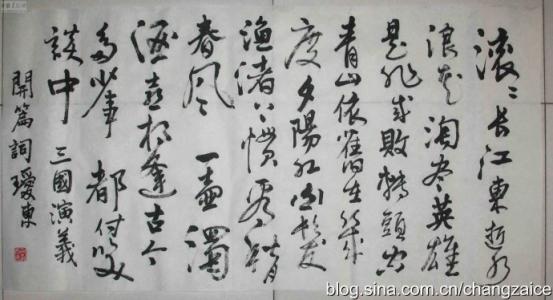 滚〻长江東逝水
浪花淘尽英雄
是非成敗轉頭空
青山依舊在几
度夕陽红白髮
渔渚上慣看秋月
春风一壶濁
酒喜相逢古今
多少事都付笑
談中 三國演義
開篇詞 瑷東
blog.sina.com.cn/changzaice